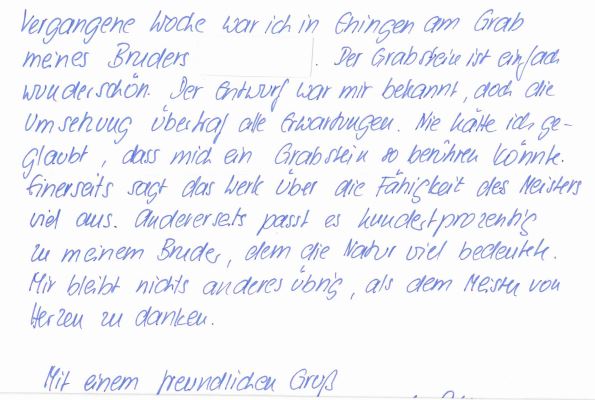 Vergangene Woche war ich in Ehingen am Grab
meines Bruders . Der Grabstein ist einfach
wunderschön. Der Entwurf war mir bekannt, doch die
Umsetzung übertraf alle Erwartungen. Nie hätte ich ge-
glaubt, dass mich ein Grabstein so berühren könnte.
Einerseits sagt das Werk über die Fähigkeit des Meisters
viel aus. Andererseits passt es hundertprozentig
zu meinem Bruder, dem die Natur viel bedeutete.
Mir bleibt nichts anderes übrig, als dem Meister von
Herzen zu danken.
Mit einem freundlichen Gruß